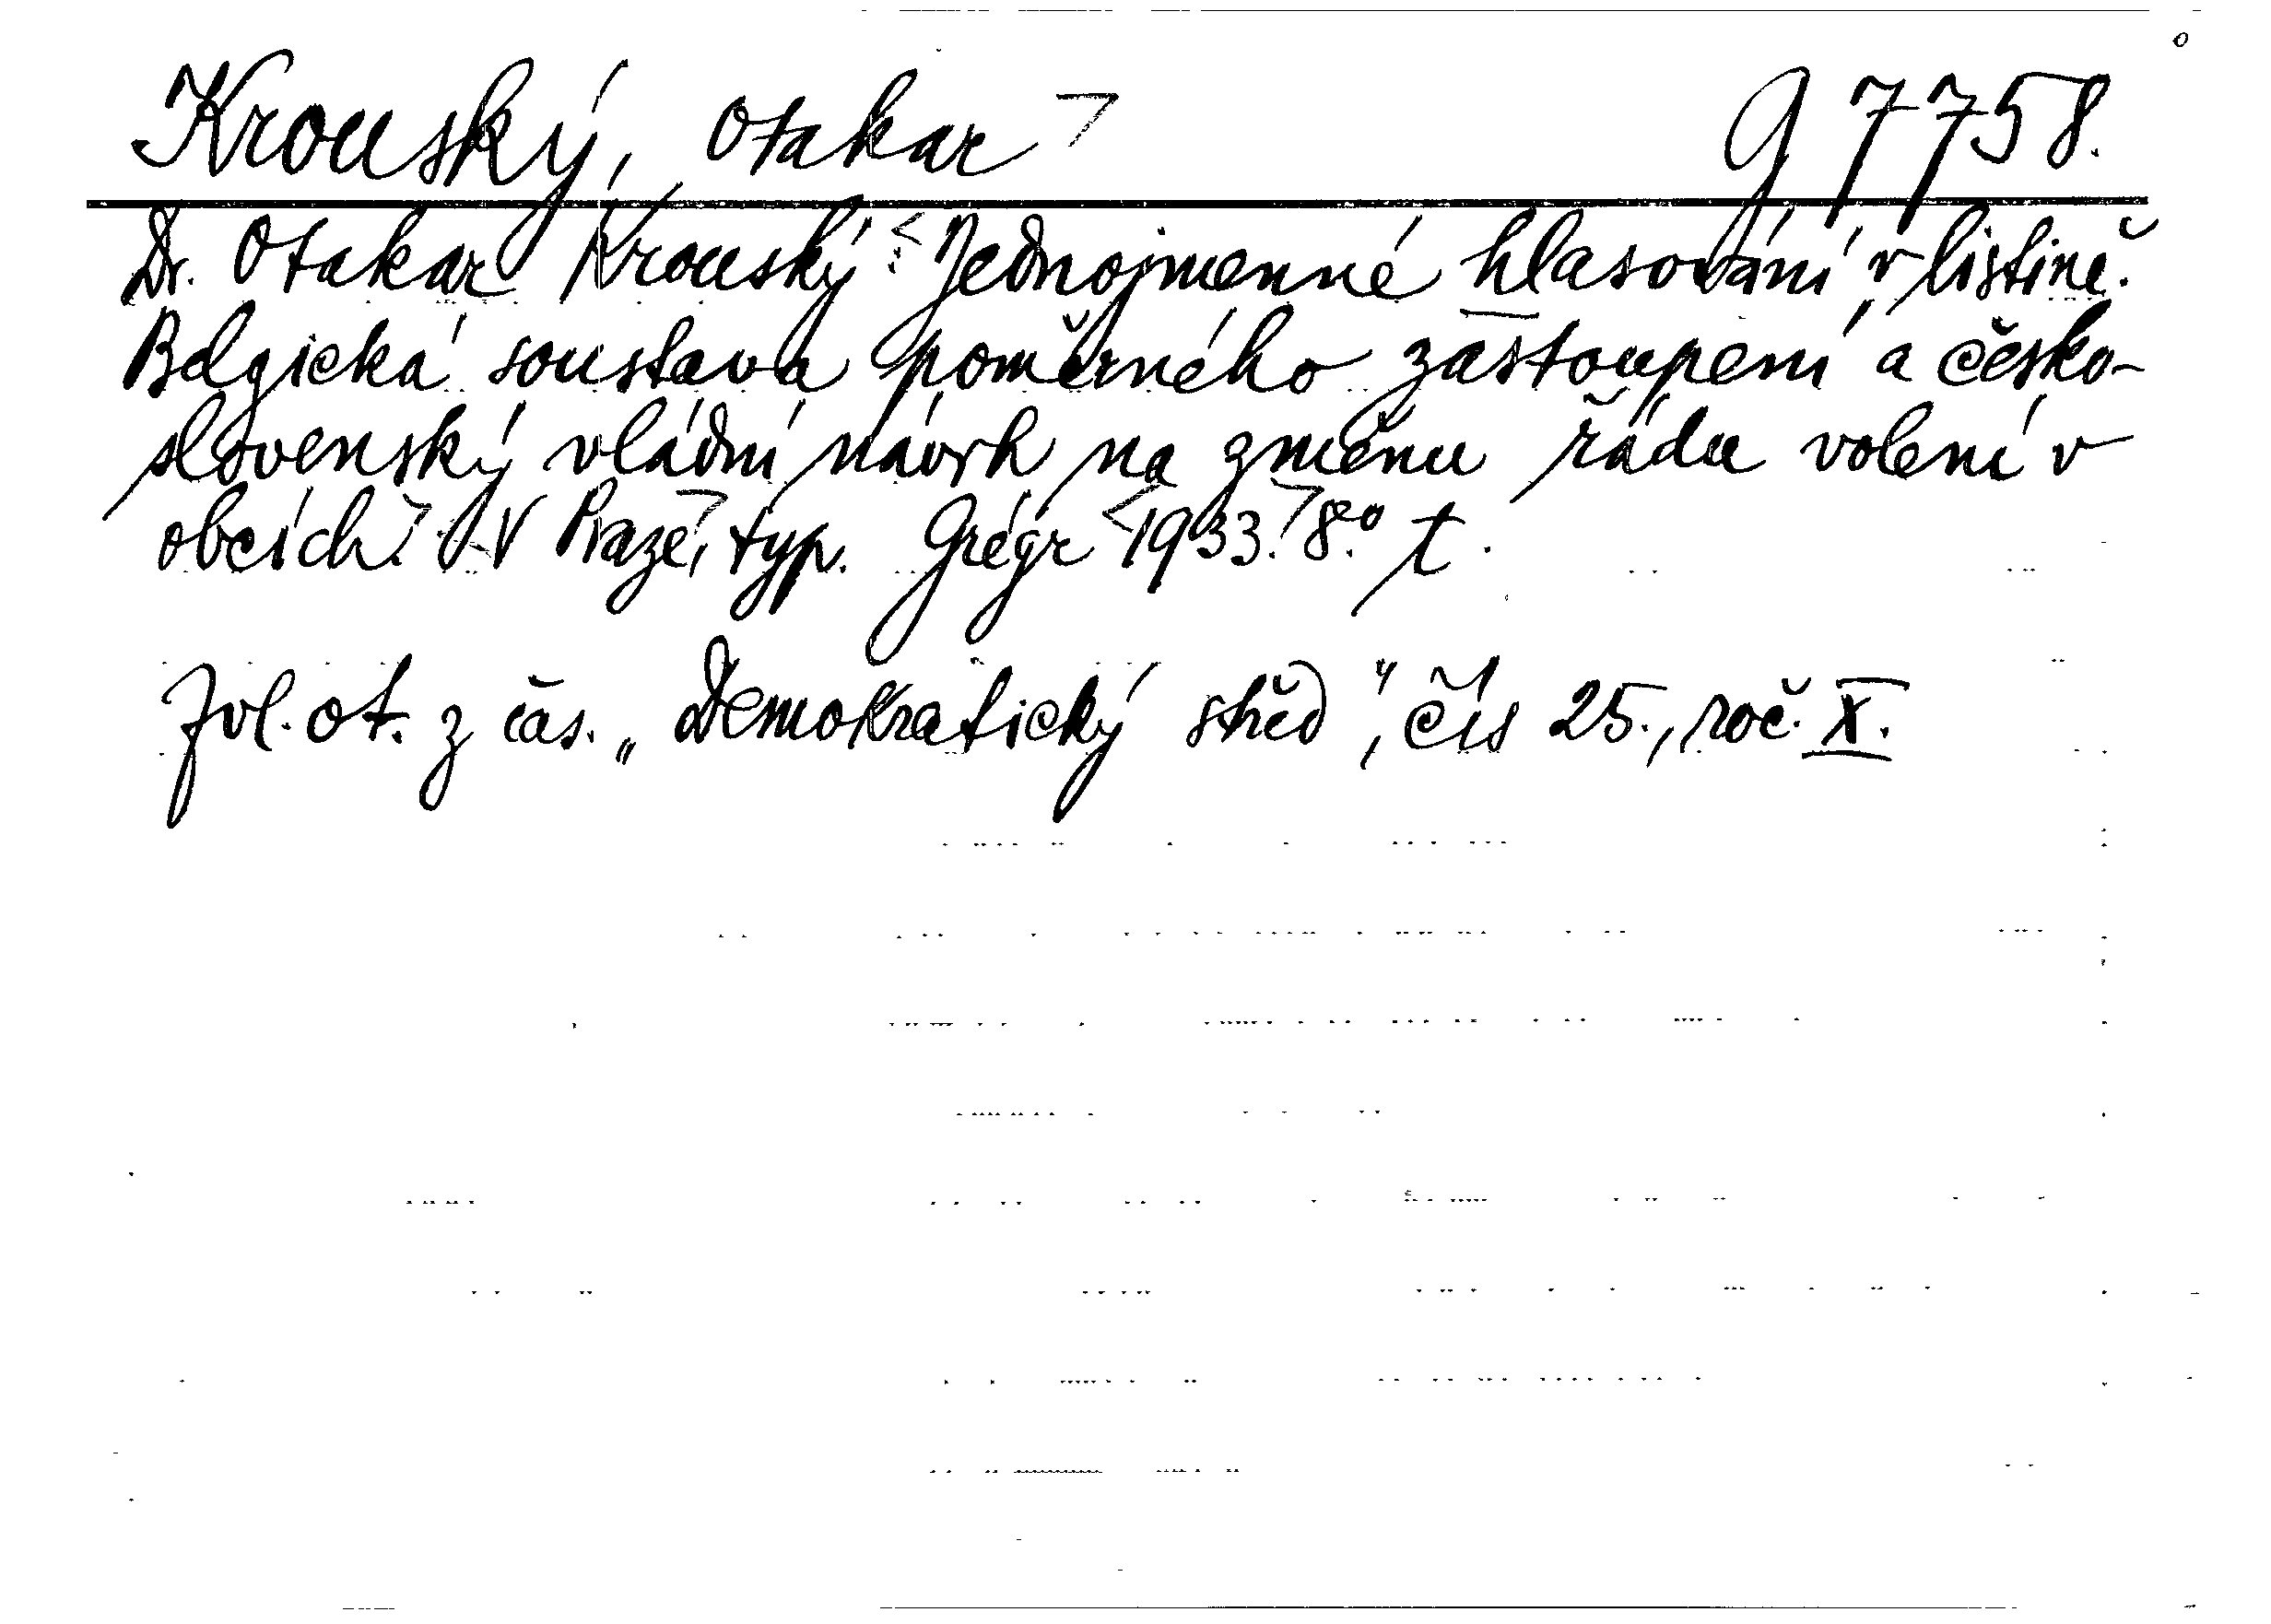 Krouský, Otakar G 7758.
Dr. Otakar Krouský: Jednojmenné hlasování v listině.
Belgická soustava poměrného zastoupení a česko-
slovenský vládní návrh na změnu řádu volení v
obcích. V Praze, typ. Grégr 1933. 8.° t.
Zvl. ot. z čas. „Demokratický střed", čís 25., roč. X.